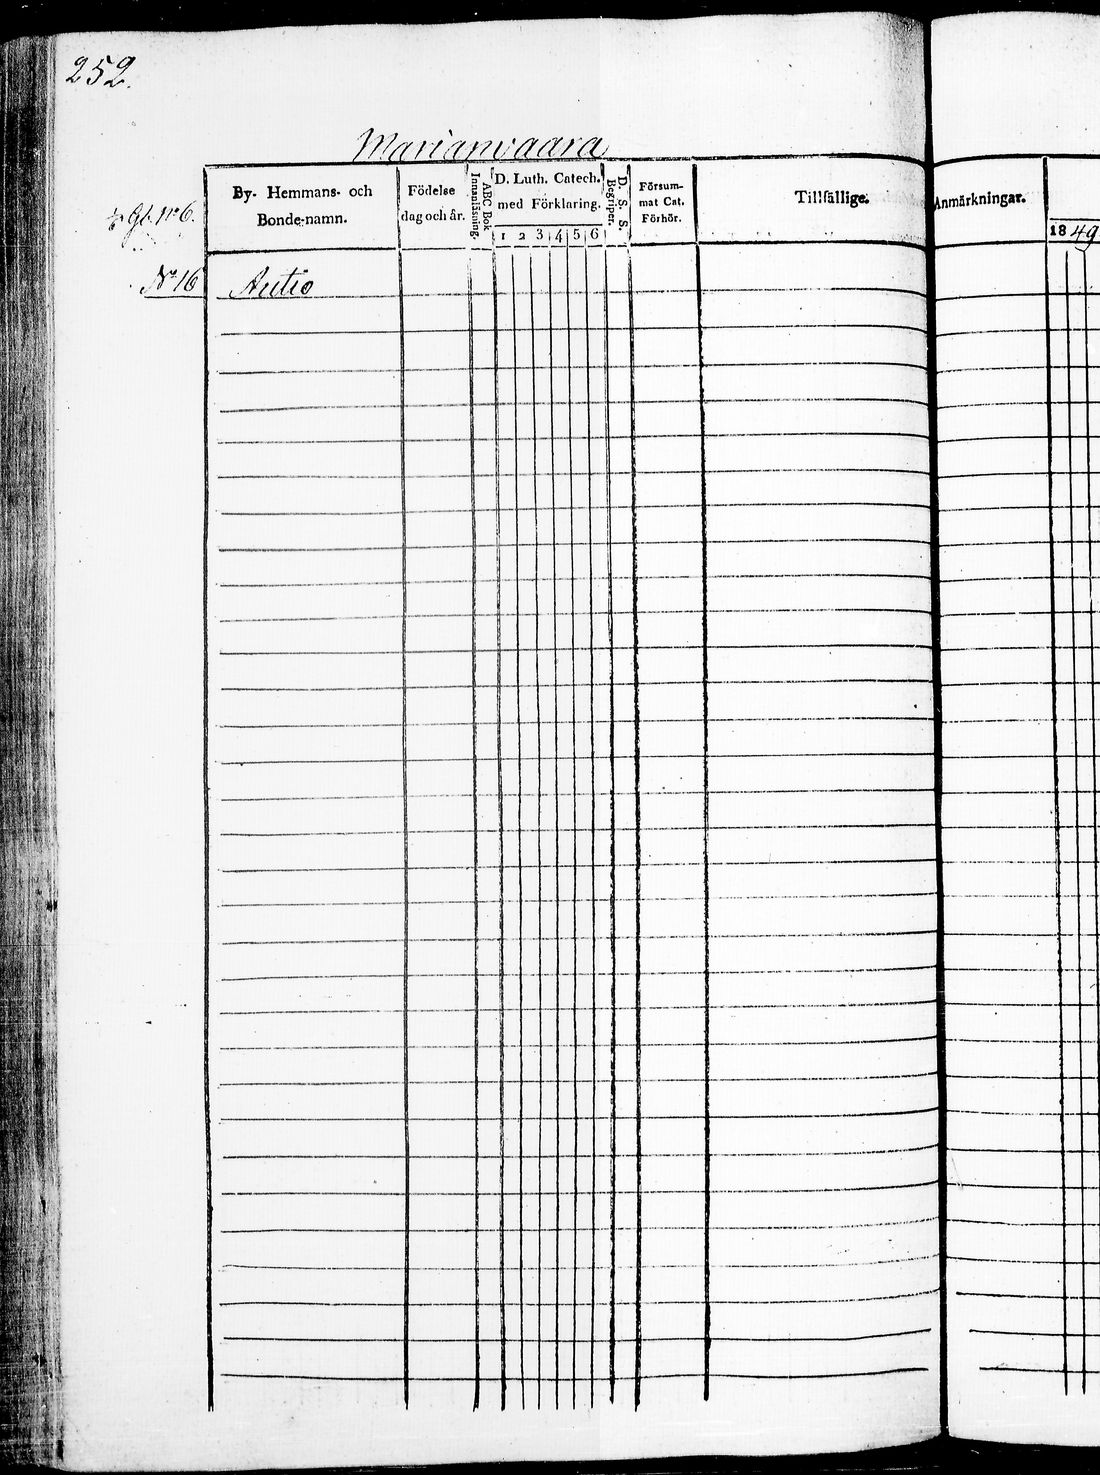 252.
Marianvaara
By- Hemmans- och
Bonde-namn.
Födelse
dag och år.
Innanläsning.
ABC Bok
D. Luth. Catech.
med Förklaring.
1 2 3 4 5 6
Begriper.
D. S. S.
Försum-
mat Cat.
Förhör.
Tillfällige.
Anmärkningar.
1849
Gl. No 6.
No 16 Autio